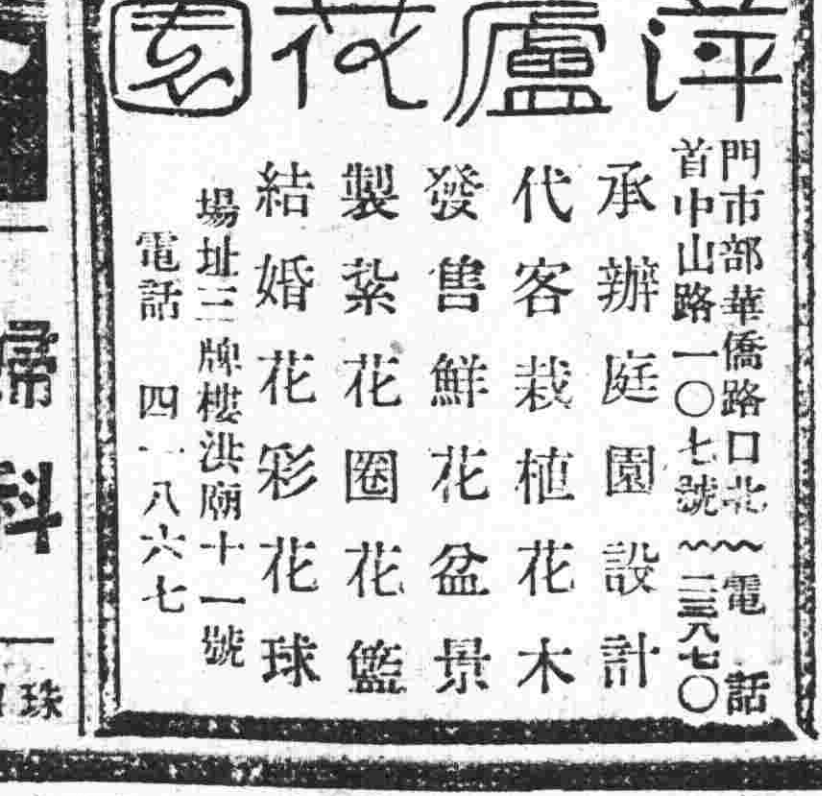 萍廬花園
門市部華僑路口北
首中山路一〇七號
電話
二三八七〇
承辦庭園設計
代客栽植花木
發售鮮花盆景
製紮花圈花籃
結婚花彩花球
場址三牌樓洪廟十一號
電話 四一八六七
婦科
珠